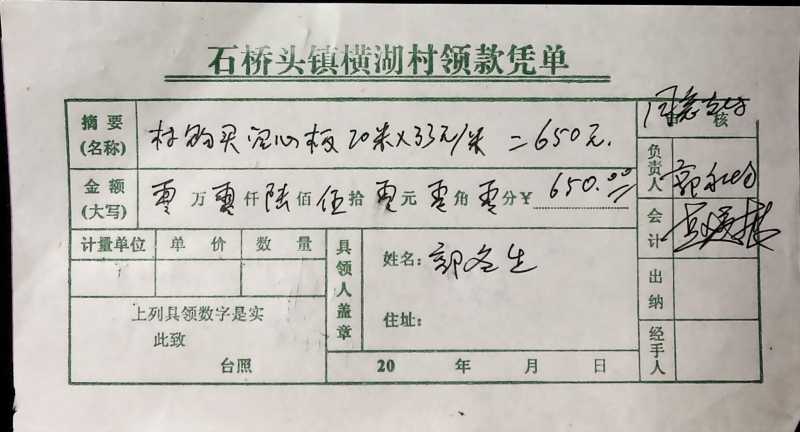 石桥头镇横湖村领款凭单
摘要(名称) 村购买空心板 20米×33元/米 =650元. 核
金额(大写) 零万零仟陆佰伍拾零元零角零分¥ 650.00 负责人
计量单位 单价 数量 具领人盖章 姓名:郭冬生 会计
上列具领数字是实 住址: 出纳
此致
台照 20 年 月 日 经手人